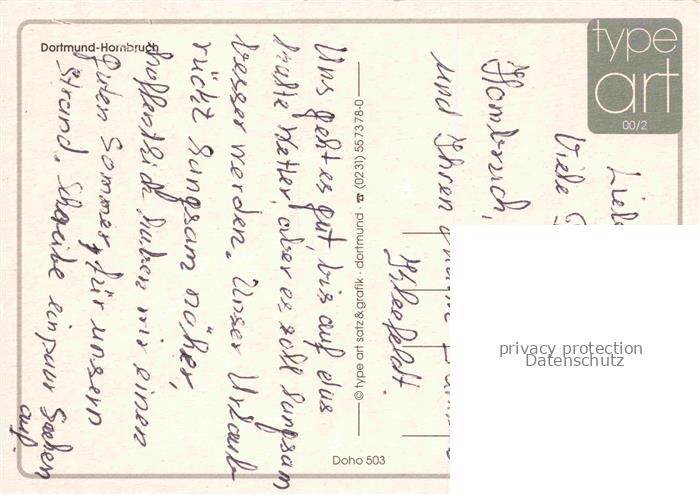 Dortmund-Hombruch
type
art
00/2
Liebe
Viele
Hombruch,
und Ihren
Kleefeldt.
Uns geht es gut, bis auf das
kalte Wetter, aber es soll langsam
besser werden. Unser Urlaub
rückt langsam näher,
hoffentlich haben wir einen
guten Sommer, für unsern
Strand. Schreibe ein paar Sachen
auf.
© type art satz & grafik · dortmund · ☎ (0231) 557378-0
Doho 503
privacy protection
Datenschutz